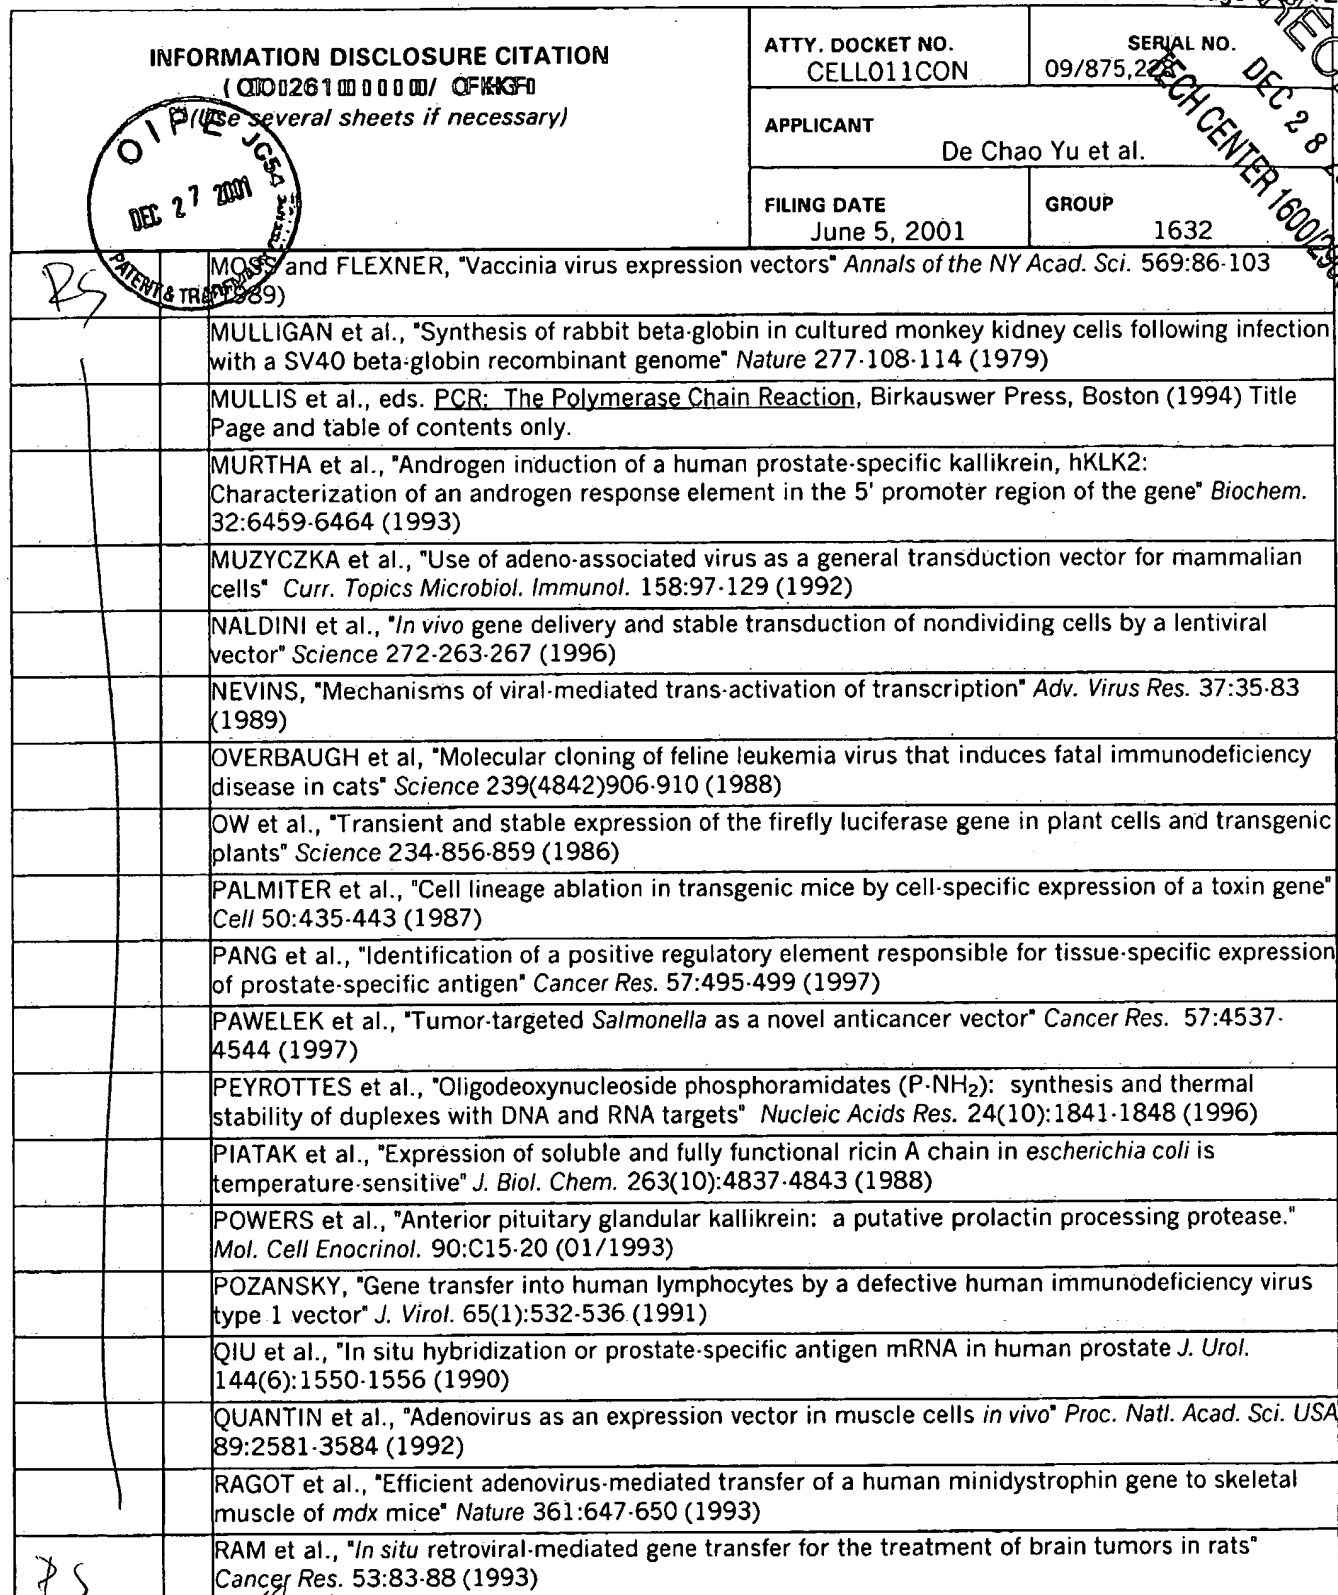 INFORMATION DISCLOSURE CITATION
(Use several sheets if necessary)
ATTY. DOCKET NO.
CELL011CON
SERIAL NO.
09/875,22
APPLICANT
De Chao Yu et al.
FILING DATE
June 5, 2001
GROUP
1632
OIPE JC54
DEC 27 2001
PATENT & TRADEMARK
DEC 28
TECH CENTER 1600/290
RS
MOSS and FLEXNER, "Vaccinia virus expression vectors" Annals of the NY Acad. Sci. 569:86-103
(1989)
MULLIGAN et al., "Synthesis of rabbit beta-globin in cultured monkey kidney cells following infection
with a SV40 beta-globin recombinant genome" Nature 277-108-114 (1979)
MULLIS et al., eds. PCR: The Polymerase Chain Reaction, Birkauswer Press, Boston (1994) Title
Page and table of contents only.
MURTHA et al., "Androgen induction of a human prostate-specific kallikrein, hKLK2:
Characterization of an androgen response element in the 5' promoter region of the gene" Biochem.
32:6459-6464 (1993)
MUZYCZKA et al., "Use of adeno-associated virus as a general transduction vector for mammalian
cells" Curr. Topics Microbiol. Immunol. 158:97-129 (1992)
NALDINI et al., "In vivo gene delivery and stable transduction of nondividing cells by a lentiviral
vector" Science 272-263-267 (1996)
NEVINS, "Mechanisms of viral-mediated trans-activation of transcription" Adv. Virus Res. 37:35-83
(1989)
OVERBAUGH et al, "Molecular cloning of feline leukemia virus that induces fatal immunodeficiency
disease in cats" Science 239(4842)906-910 (1988)
OW et al., "Transient and stable expression of the firefly luciferase gene in plant cells and transgenic
plants" Science 234-856-859 (1986)
PALMITER et al., "Cell lineage ablation in transgenic mice by cell-specific expression of a toxin gene"
Cell 50:435-443 (1987)
PANG et al., "Identification of a positive regulatory element responsible for tissue-specific expression
of prostate-specific antigen" Cancer Res. 57:495-499 (1997)
PAWELEK et al., "Tumor-targeted Salmonella as a novel anticancer vector" Cancer Res. 57:4537-
4544 (1997)
PEYROTTES et al., "Oligodeoxynucleoside phosphoramidates (P-NH₂): synthesis and thermal
stability of duplexes with DNA and RNA targets" Nucleic Acids Res. 24(10):1841-1848 (1996)
PIATAK et al., "Expression of soluble and fully functional ricin A chain in escherichia coli is
temperature-sensitive" J. Biol. Chem. 263(10):4837-4843 (1988)
POWERS et al., "Anterior pituitary glandular kallikrein: a putative prolactin processing protease."
Mol. Cell Enocrinol. 90:C15-20 (01/1993)
POZANSKY, "Gene transfer into human lymphocytes by a defective human immunodeficiency virus
type 1 vector" J. Virol. 65(1):532-536 (1991)
QIU et al., "In situ hybridization or prostate-specific antigen mRNA in human prostate J. Urol.
144(6):1550-1556 (1990)
QUANTIN et al., "Adenovirus as an expression vector in muscle cells in vivo" Proc. Natl. Acad. Sci. USA
89:2581-3584 (1992)
RAGOT et al., "Efficient adenovirus-mediated transfer of a human minidystrophin gene to skeletal
muscle of mdx mice" Nature 361:647-650 (1993)
RS
RAM et al., "In situ retroviral-mediated gene transfer for the treatment of brain tumors in rats"
Cancer Res. 53:83-88 (1993)